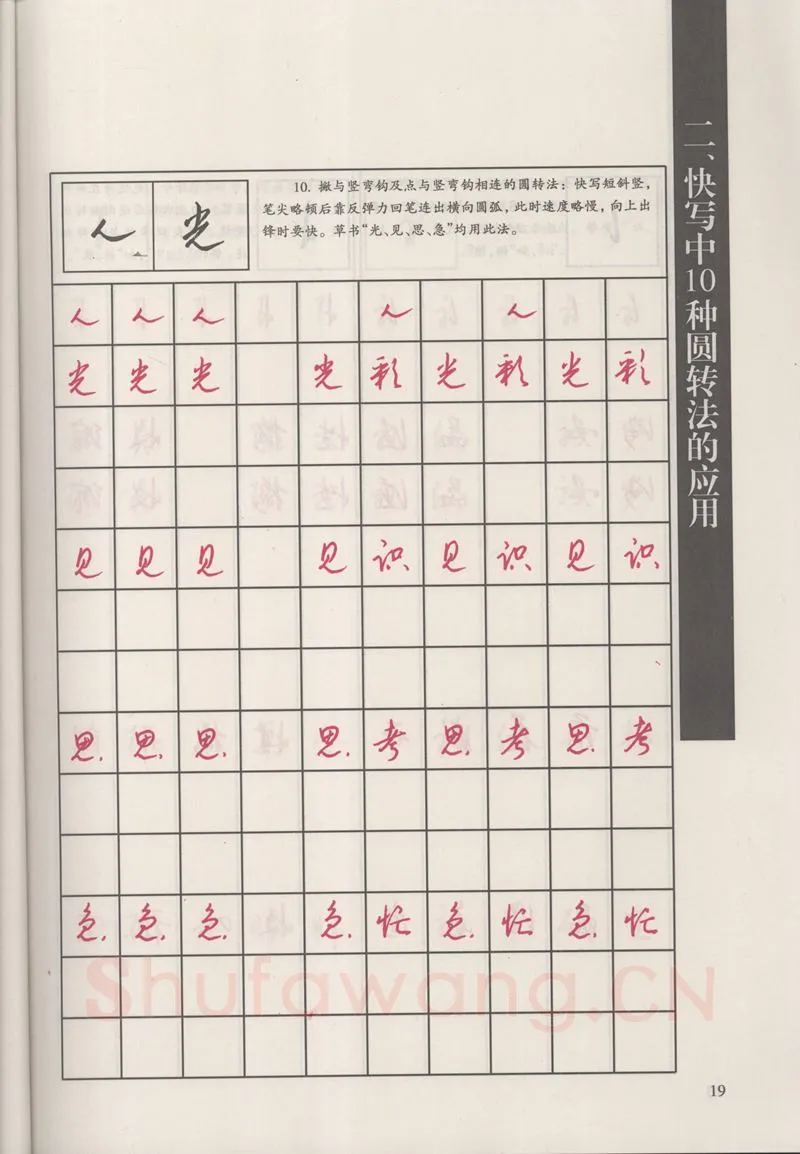 二、快写中10种圆转法的应用
10. 撇与竖弯钩及点与竖弯钩相连的圆转法：快写短斜竖，
笔尖略顿后靠反弹力回笔连出横向圆弧，此时速度略慢，向上出
锋时要快。草书“光、见、思、急”均用此法。
光
光 光 光 光 彩 光 彩 光 彩
见 见 见 见 识 见 识 见 识
思 思 思 思 考 思 考 思 考
急 急 急 急 忙 急 忙 急 忙
Shufawang.CN
19